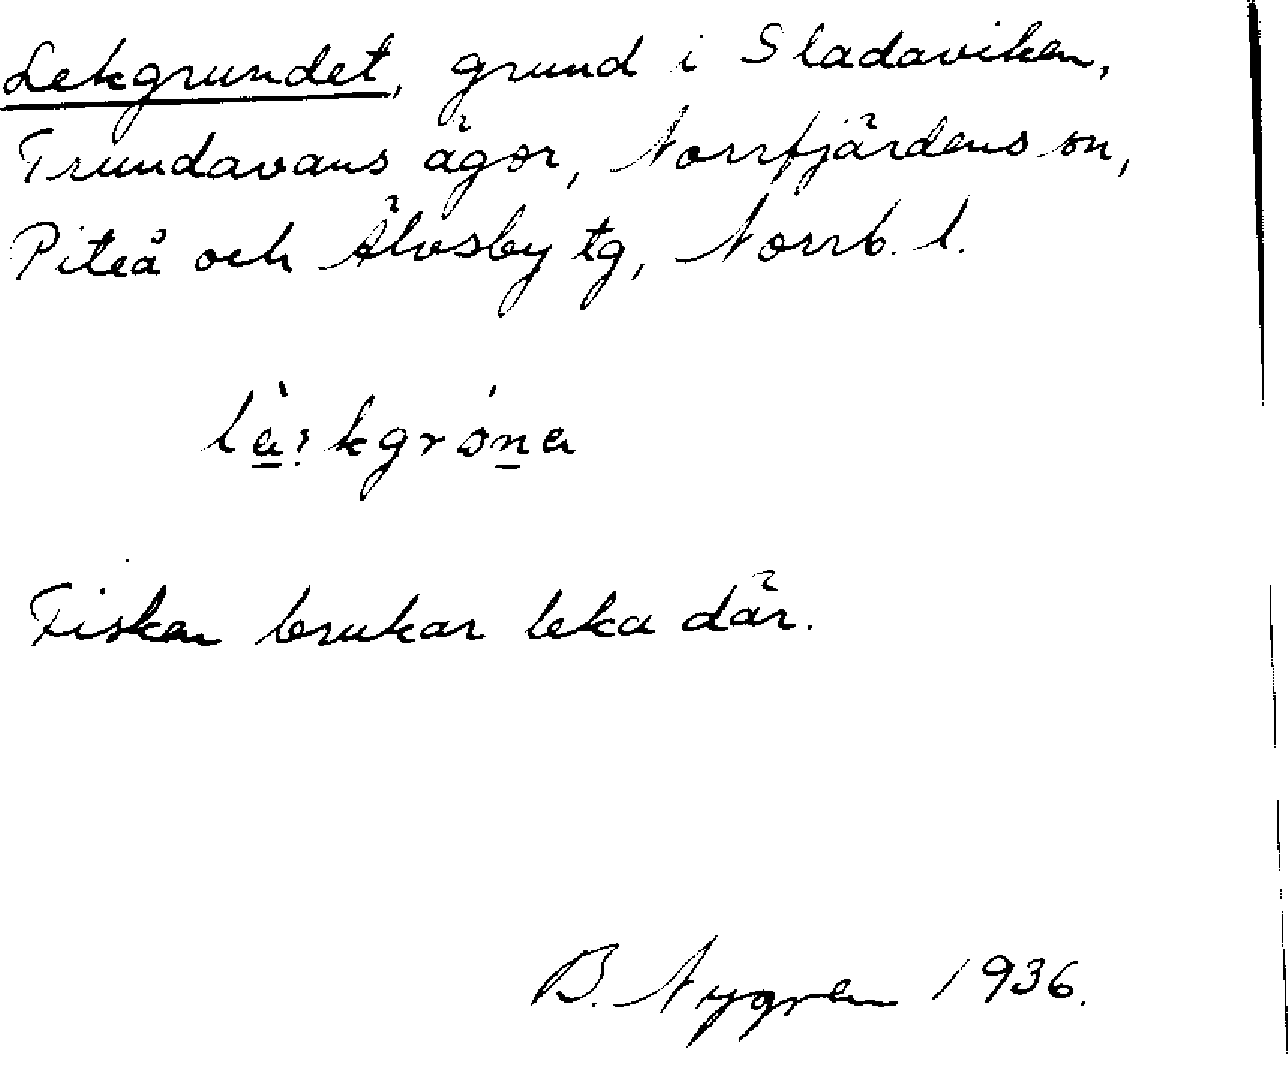 Lekgrundet, grund i Sladaviken,
Trundavans ägor, Norrfjärdens sn,
Piteå och Älvsby tg, Norrb. l.
lä̀:kgró̱na
Fisken brukar leka där.
B. Nygren 1936.